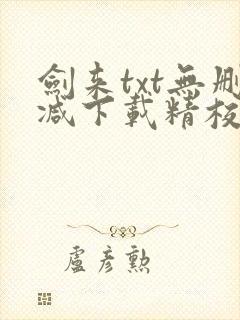 劍来txt無刪
减下載精校
盧彥勲